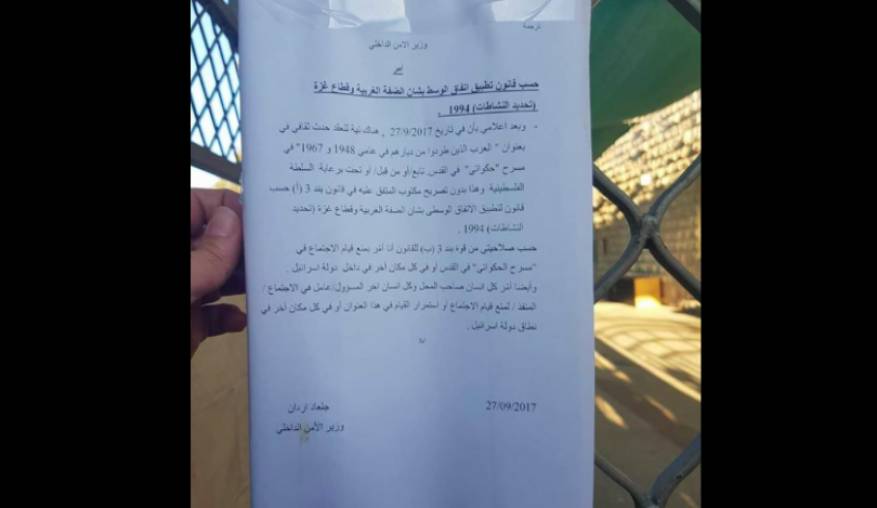 ترجمة
وزير الامن الداخلي
أمر
حسب قانون تطبيق اتفاق الوسط بشان الضفة الغربية وقطاع غزة
(تحديد النشاطات) 1994 .
- وبعد أعلامي بأن في تاريخ 27/9/2017 , هناك نية لعقد حدث ثقافي في
بعنوان " العرب الذين طردوا من ديارهم في عامي 1948 و 1967" في
مسرح "حكواتي" في القدس تابع/أو من قبل/ أو تحت برعاية السلطة
الفلسطينية وهذا بدون تصريح مكتوب المتفق عليه في قانون بند 3 (أ) حسب
قانون لتطبيق الاتفاق الوسطى بشان الضفة الغربية وقطاع غزة (تحديد
النشاطات) 1994 .
حسب صلاحيتي من قوة بند 3 (ب) للقانون أنا أمر بمنع قيام الاجتماع في
"مسرح الحكواتي" في القدس أو في كل مكان أخر في داخل دولة اسرائيل .
وأيضا أمر كل انسان صاحب المحل وكل انسان اخر المسؤول/عامل في الاجتماع /
المنفذ / لمنع قيام الاجتماع أو استمرار القيام في هذا العنوان أو في كل مكان أخر في
نطاق دولة اسرائيل .
27/09/2017
جلعاد اردان
وزير الأمن الداخلي